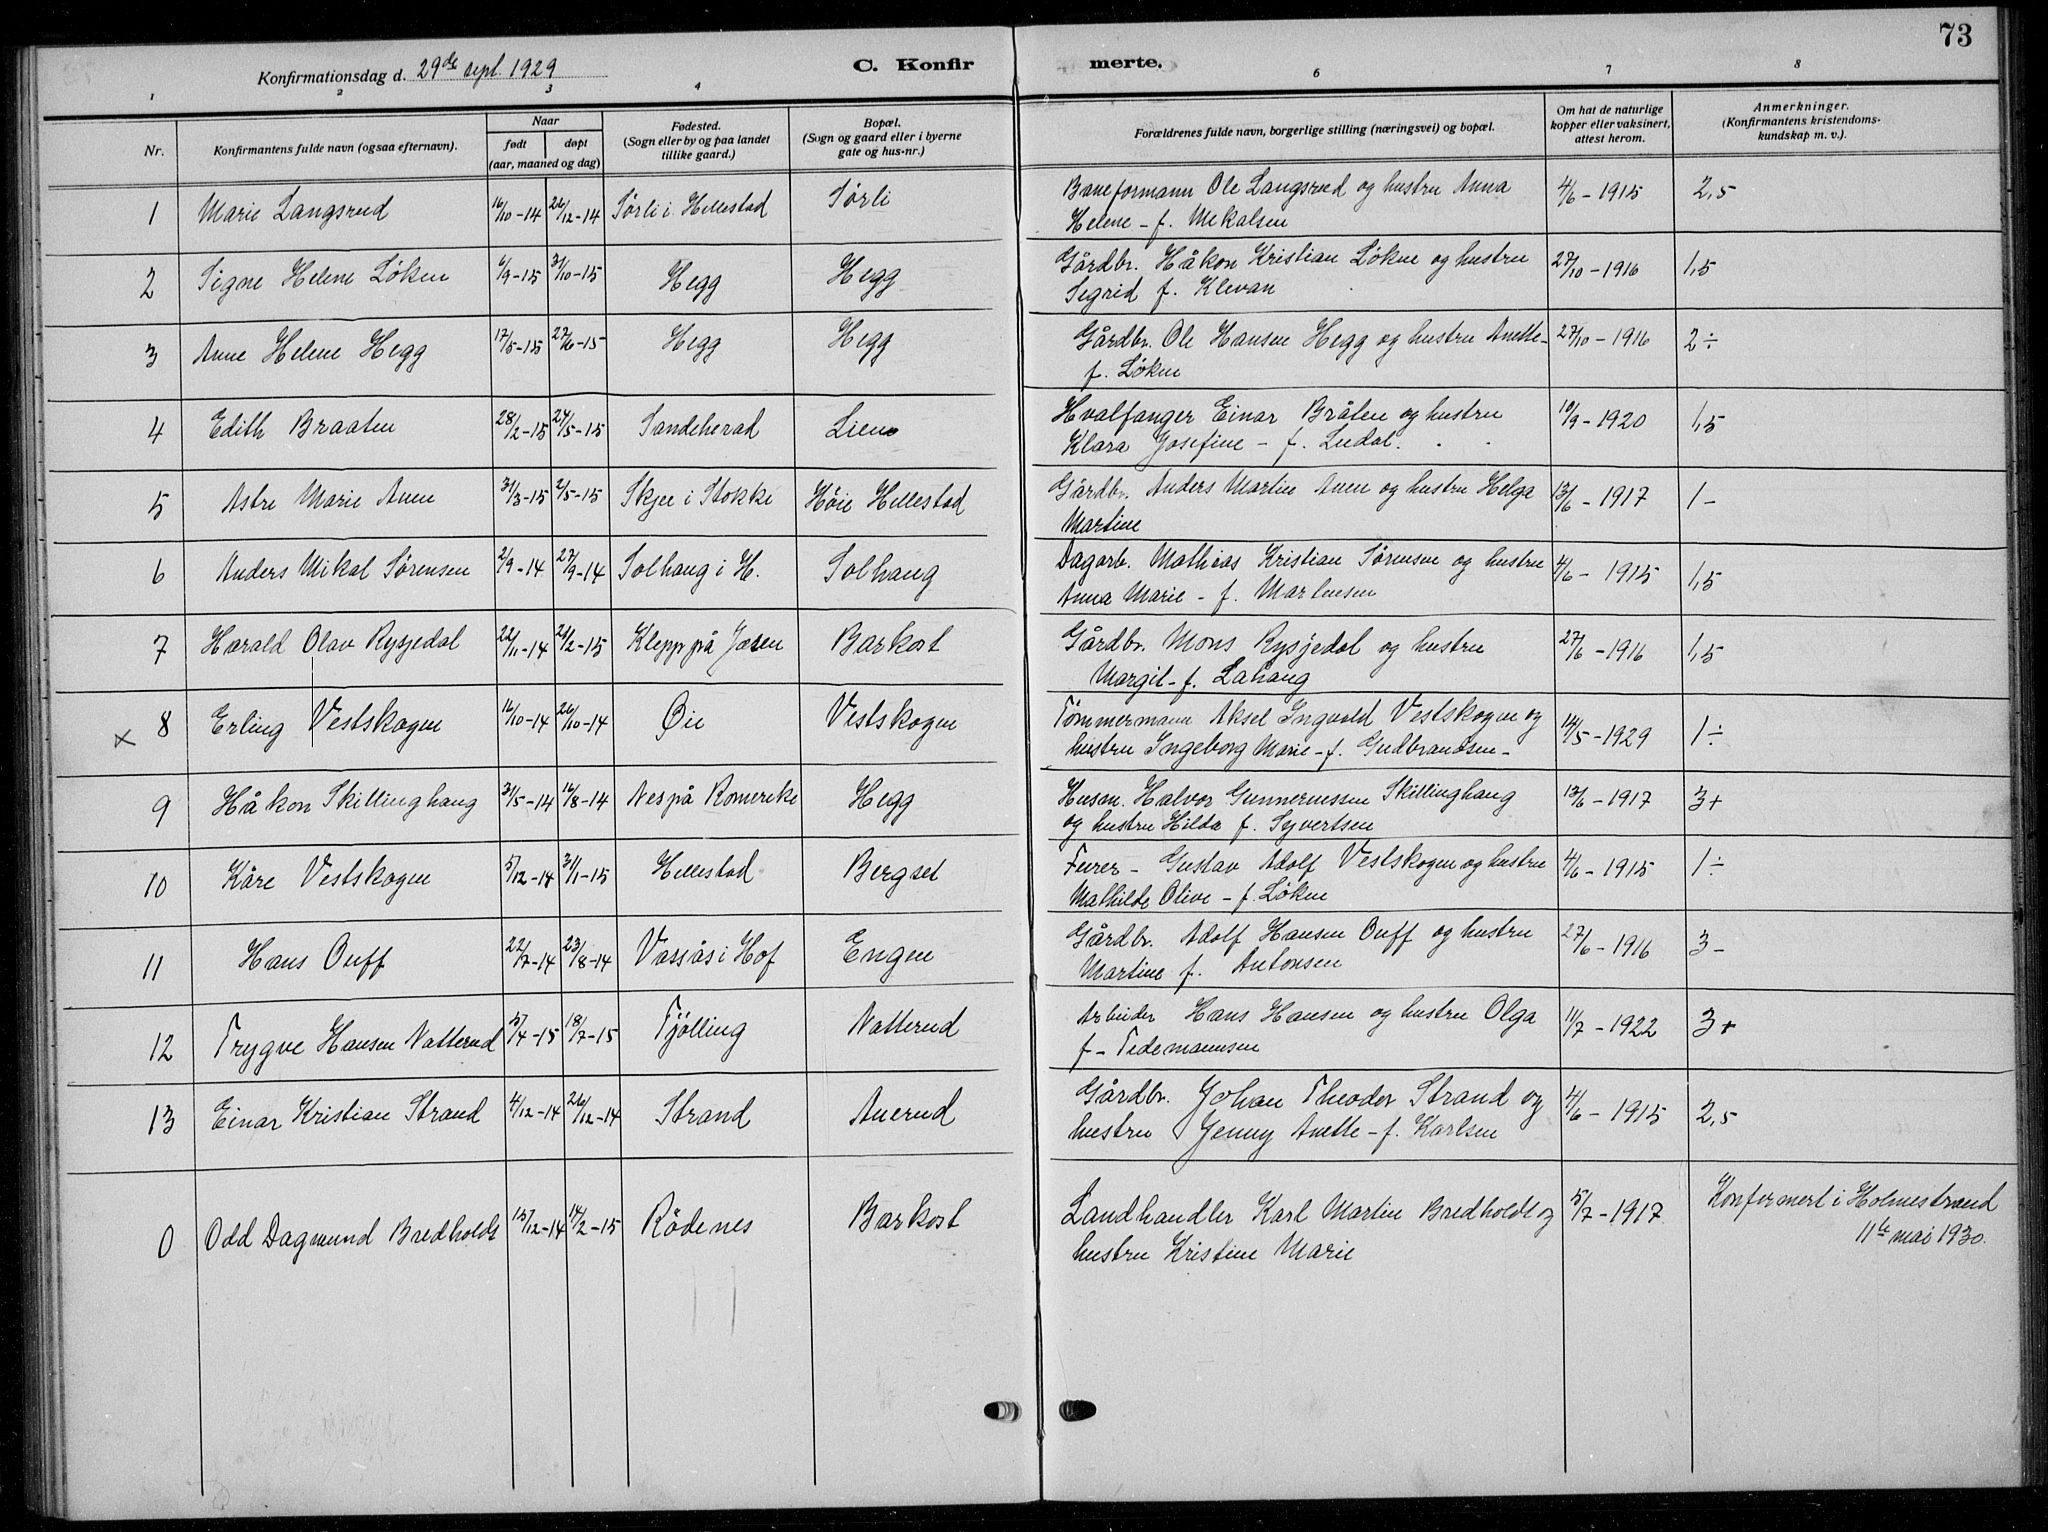 73
Konfirmationsdag d. 29de sept. 1929
C. Konfir merte.
1 2 3 4 6 7 8
Nr.
Konfirmantens fulde navn (ogsaa efternavn).
Naar
født døpt
(aar, maaned og dag)
Fødested.
(Sogn eller by og paa landet
tillike gaard.)
Bopæl.
(Sogn og gaard eller i byerne
gate og hus-nr.)
Forældrenes fulde navn, borgerlige stilling (næringsvei) og bopæl.
Om hat de naturlige
kopper eller vaksinert,
attest herom.
Anmerkninger.
(Konfirmantens kristendoms-
kundskap m. v.).
1 Marie Langsrud 16/10-14 26/12-14 Sørli i Hillestad Sørli Baneformann Ole Langsrud og hustru Anna 4/6 - 1915 2,5
Helene - f. Mikalsen
2 Signe Helene Løken 6/9-15 31/10-15 Hegg Hegg Gårdbr. Håkon Kristian Løkne og hustru 27/10 - 1916 1,5
Sigrid f. Klevan
3 Anne Helene Hegg 17/5-15 27/6-15 Hegg Hegg Gårdbr. Ole Hansen Hegg og hustru Anette- 27/10 - 1916 2÷
f. Løkne
4 Edith Braaten 28/2-15 24/5-15 Sandeherad Lien Hvalfanger Einar Bråten og hustru 10/9 - 1920 1,5
Klara Josefine - f.
5 Astri Marie 31/3-15 2/5-15 Skjee i Stokke Høie Hillestad Gårdbr. Anders Martin og hustru Helga 13/6 - 1917 1-
Martine
6 Anders Mikal Sørensen 2/9-14 27/9-14 Solhaug i H. Solhaug Dagarb. Mathias Kristian Sørensen og hustru 4/6 - 1915 1,5
Anna Marie - f. Martinsen
7 Harald Olav Rysjedal 22/11-14 21/2-15 Klepp på Jæren Barkost Gårdbr. Mons Rysjedal og hustru 27/6 - 1916 1,5
Margit - f. Lahaug
x 8 Erling Vestskogen 16/10-14 26/10-14 Øie Vestskogen Tømmermann Aksel Ingvald Vestskogen og 14/5 - 1929 1÷
hustru Ingeborg Marie - f. Gudbrandsen-
9 Håkon Skillinghaug 31/5-14 16/8-14 Nes på Romerike Hegg Husm. Halvor Gunneriussen Skillinghaug 13/6 - 1917 3+
og hustru Hilda f. Syvertsen
10 Kåre Vestskogen 5/12-14 31/1-15 Hillestad Bergset Furer - Gustav Adolf Vestskogen og hustru 4/6 - 1915 1÷
Mathilde Olive - f. Løkne
11 Hans Ouff 22/7-14 23/8-14 Vassås i Hof Engen Gårdbr. Adolf Hansen Ouff og hustru 27/6 - 1916 3-
Martine f. Antonsen
12 Trygve Hansen Natterud 5/4-15 18/7-15 Tjølling Natterud Arbeider Hans Hansen og hustru Olga 11/7 - 1922 3+
f - Tidemannsen
13 Einar Kristian Strand 4/12-14 26/12-14 Strand Auerud Gårdbr. Johan Theodor Strand og 4/6 - 1915 2,5
hustru Jenny Anette - f. Karlsen
0 Odd Dagmund Bredholdt 15/12-14 14/2-15 Rödenes Barkost Landhandler Karl Martin Bredholdt og 5/7 - 1917 Konfirmert i Holmestrand
hustru Kristine Marie 11te mai 1930.